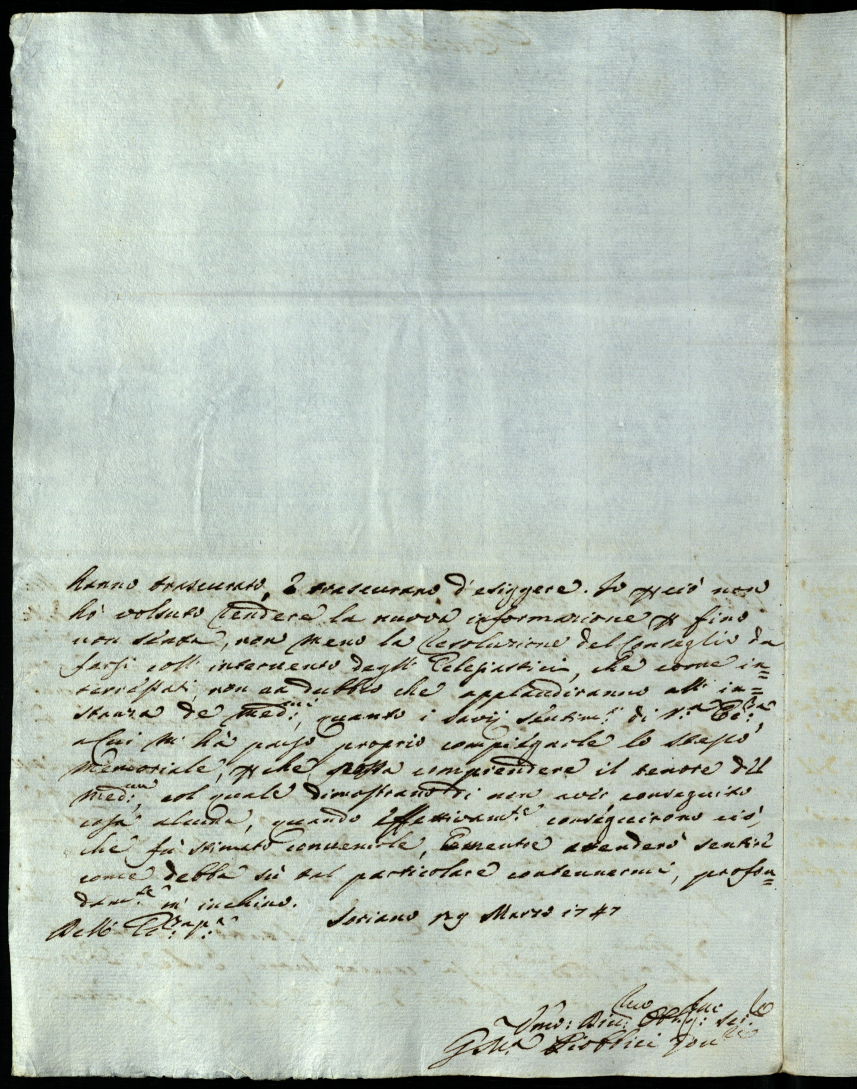 hanno trascurato, e trascurano d'esiggere. Io p ciò non
hò volsuto rendere la nuova informazione p fino
non senta, non meno la resoluzione del Conseglio da
farsi coll' intervento degli Eclesiastici, che come in=
teressati, non ha dubbio che applaudiranno all' in=
stanza de med:mi, quanto i savij sentim:ti di V:ra Ecc:za
a cui mi hà parso proprio compiegarle lo stesso
Memoriale, p che possa comprendere il tenore del
med:mo, col quale dimostrano di non aver conseguito
cosa alcuna, quando effettivam:te conseguirono ciò,
che fù stimato convenevole, e mentre attenderò sentire
come debba sù tal particolare contennermi, profon=
dam:te m' inchino.
Dell' Ecc:za V:ra Soriano 29 Marzo 1747
Vmo: Div: Obbg: Ser:
G. M:a